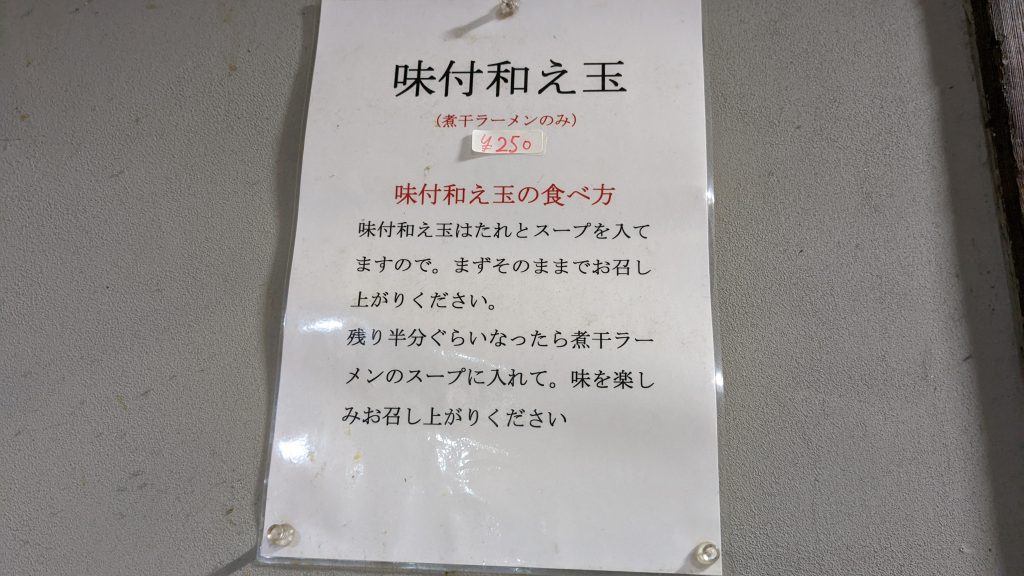 味付和え玉
(煮干ラーメンのみ)
¥250
味付和え玉の食べ方
味付和え玉はたれとスープを入て
ますので。まずそのままでお召し
上がりください。
残り半分ぐらいなったら煮干ラー
メンのスープに入れて。味を楽し
みお召し上がりください